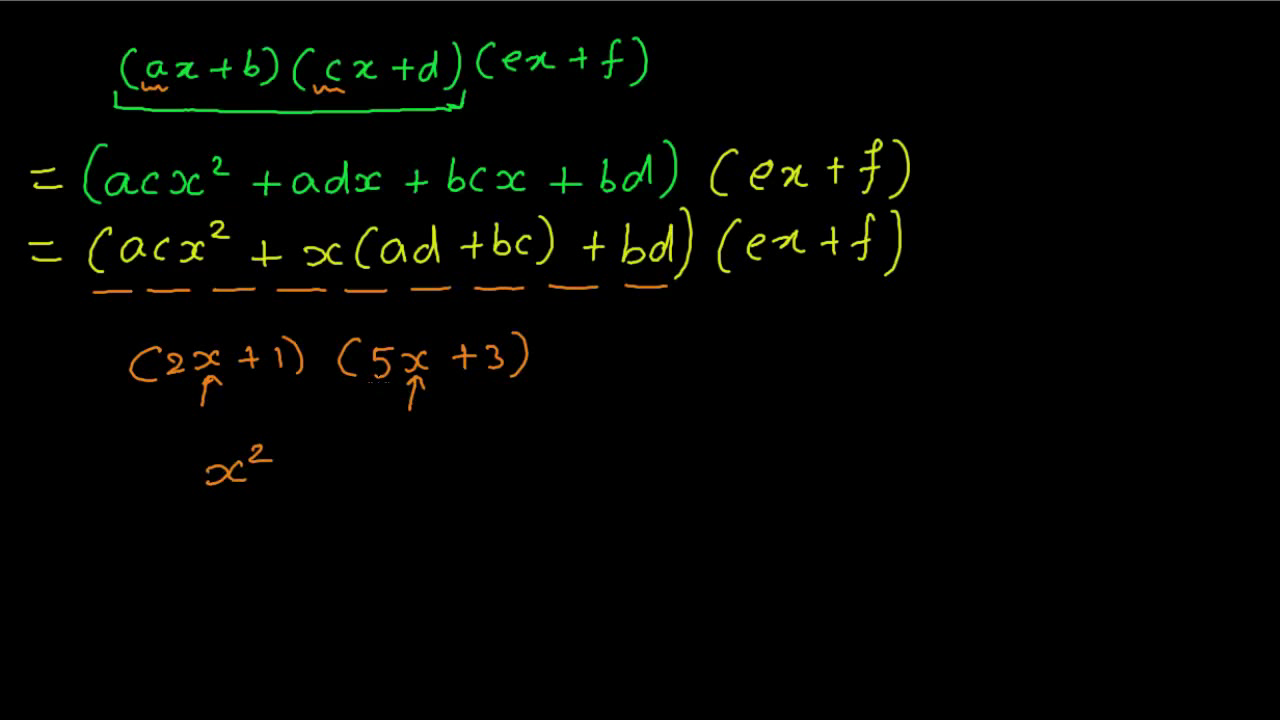 (ax+b)(cx+d)(ex+f)
= (acx² + adx + bcx + bd) (ex+f)
= (acx² + x(ad+bc) + bd) (ex+f)
(2x+1) (5x+3)
x²